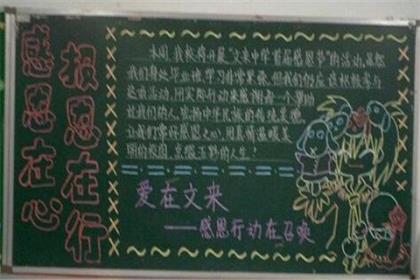 感恩在心
报恩在行
本周,我校将开展“文来中学首届感恩节”的活动,虽然
我们身处毕业班,学习非常紧张,但我们仍应该积极参与
这次活动,用实际行动来感谢每一个帮助
过我们的人,发扬中华民族的传统美德,
让我们常怀感恩之心,用真情温暖美
丽的校园,点缀五彩的人生!
爱在文来
——感恩行动在召唤